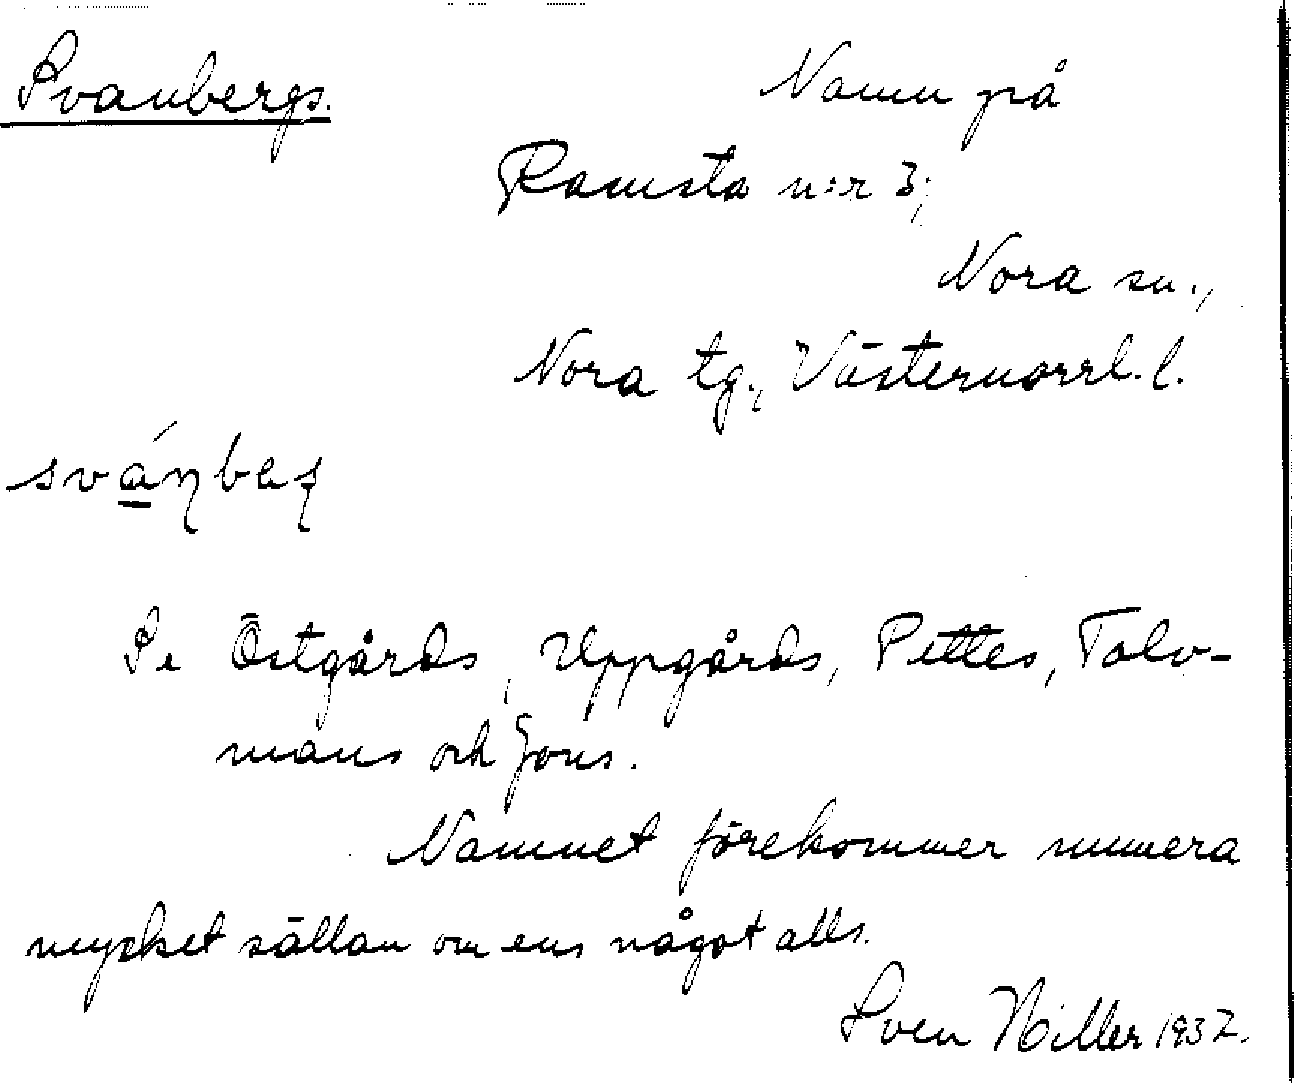 Svanbergs.
Namn på
Ramsta n:r 3;
Nora sn.,
Nora tg., Västernorrl. l.
sváɳbaʂ
Se Östgårds, Uppgårds, Pettes, Tolv-
mans och Jons.
Namnet förekommer numera
mycket sällan om ens något alls.
Sven Hiller 1937.